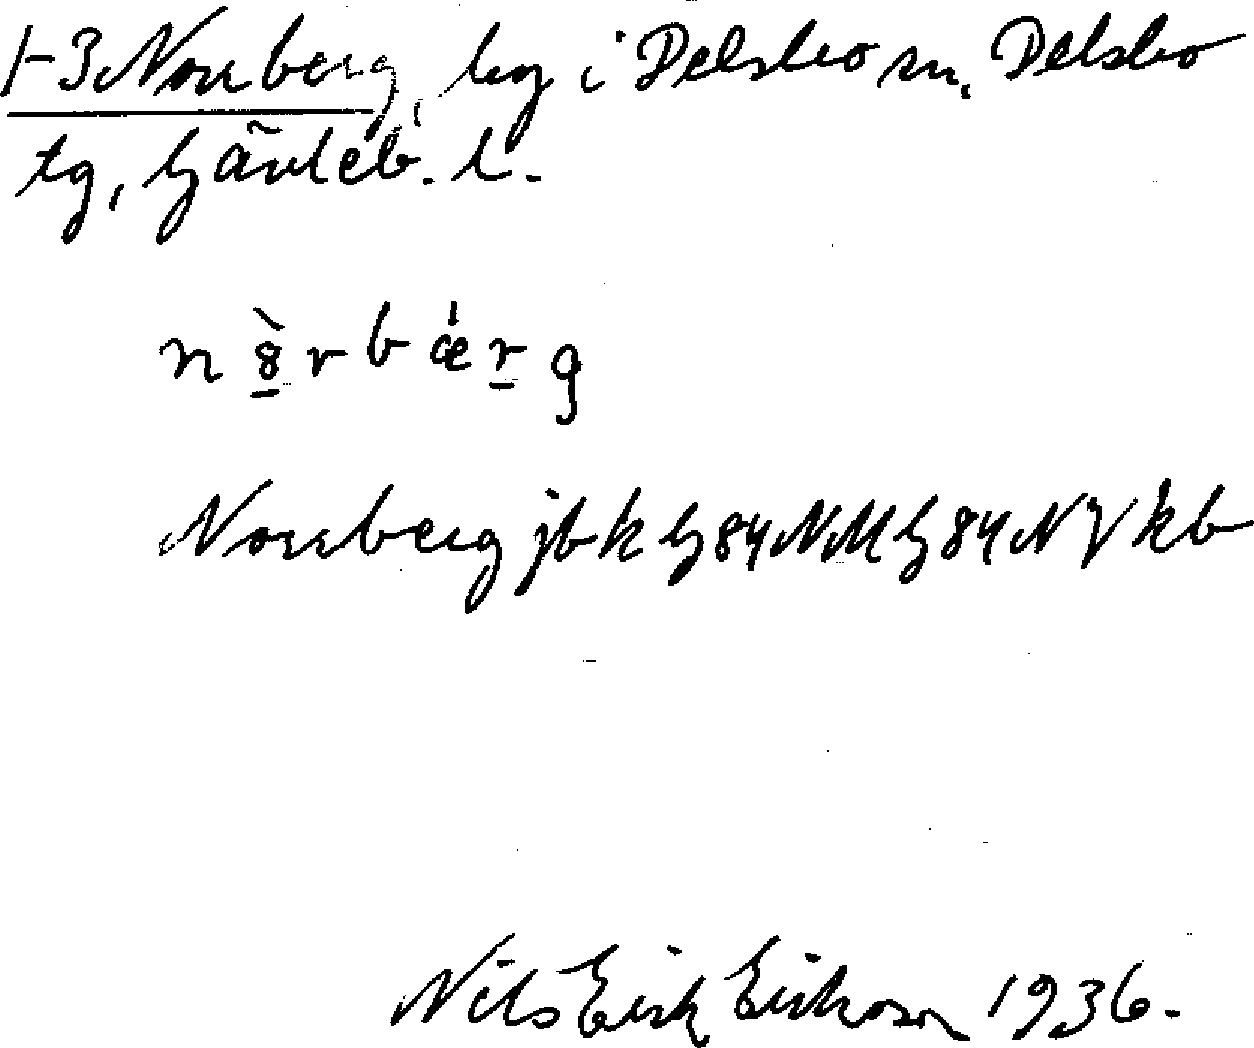 1-3 Norrberg, by i Delsbo sn, Delsbo
tg, Gävleb. l.
n ò̱ r b ǽ ṟ g
Norrberg jbk G84NM G84NV kb
Nils Erik Erikson 1936.